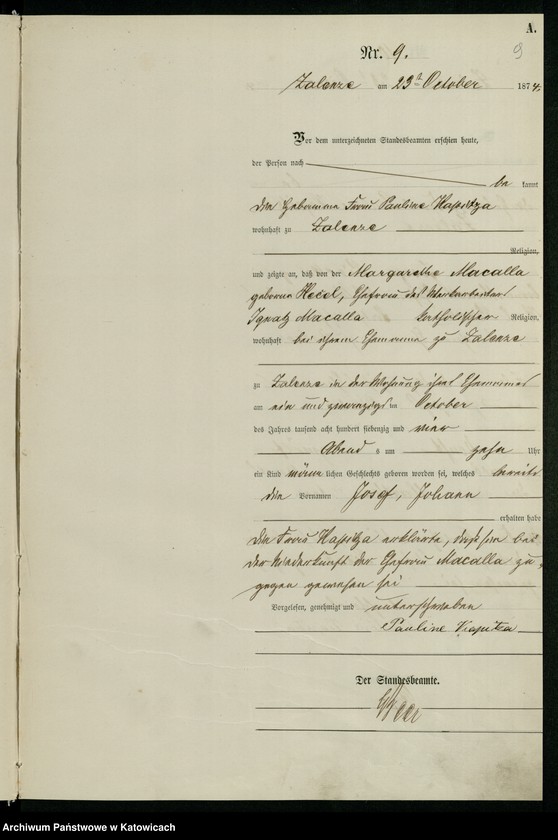 A.
9
Nr. 9.
Zalenze am 23t October 1874.
Vor dem unterzeichneten Standesbeamten erschien heute,
der Person nach
be kannt
die Hebamme Frau Pauline Kapitza
wohnhaft zu Zalenze
Religion,
und zeigte an, daß von der Margarethe Macalla
geborne Hecel, Ehefrau des
Ignatz Macalla katholischer Religion,
wohnhaft bei ihrem Ehemanne zu Zalenze
zu Zalenze in der Wohnung ihres Ehemannes
am ein und zwanzigs ten October
des Jahres tausend acht hundert siebenzig und vier
Abend s um zehn Uhr
ein Kind männ lichen Geschlechts geboren worden sei, welches bereits
die Vornamen Josef, Johann
erhalten habe
Die Frau Kapitza erklärte, daß sie bei
der Niederkunft der Ehefrau Macalla zu-
gegen gewesen sei
Vorgelesen, genehmigt und unterschrieben
Pauline Kapitza
Der Standesbeamte.
Archiwum Państwowe w Katowicach